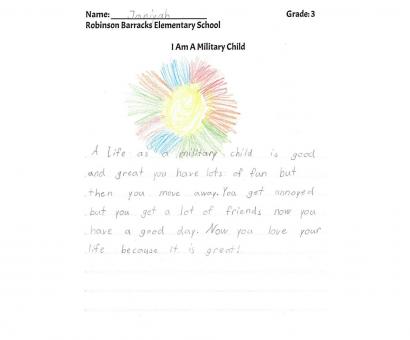 Name: Janiyah Grade: 3
Robinson Barracks Elementary School
I Am A Military Child
A life as a military child is good
and great you have lots of fun but
then you move away. You get annoyed
but you get a lot of friends now you
have a good day. Now you love your
life because it is great!